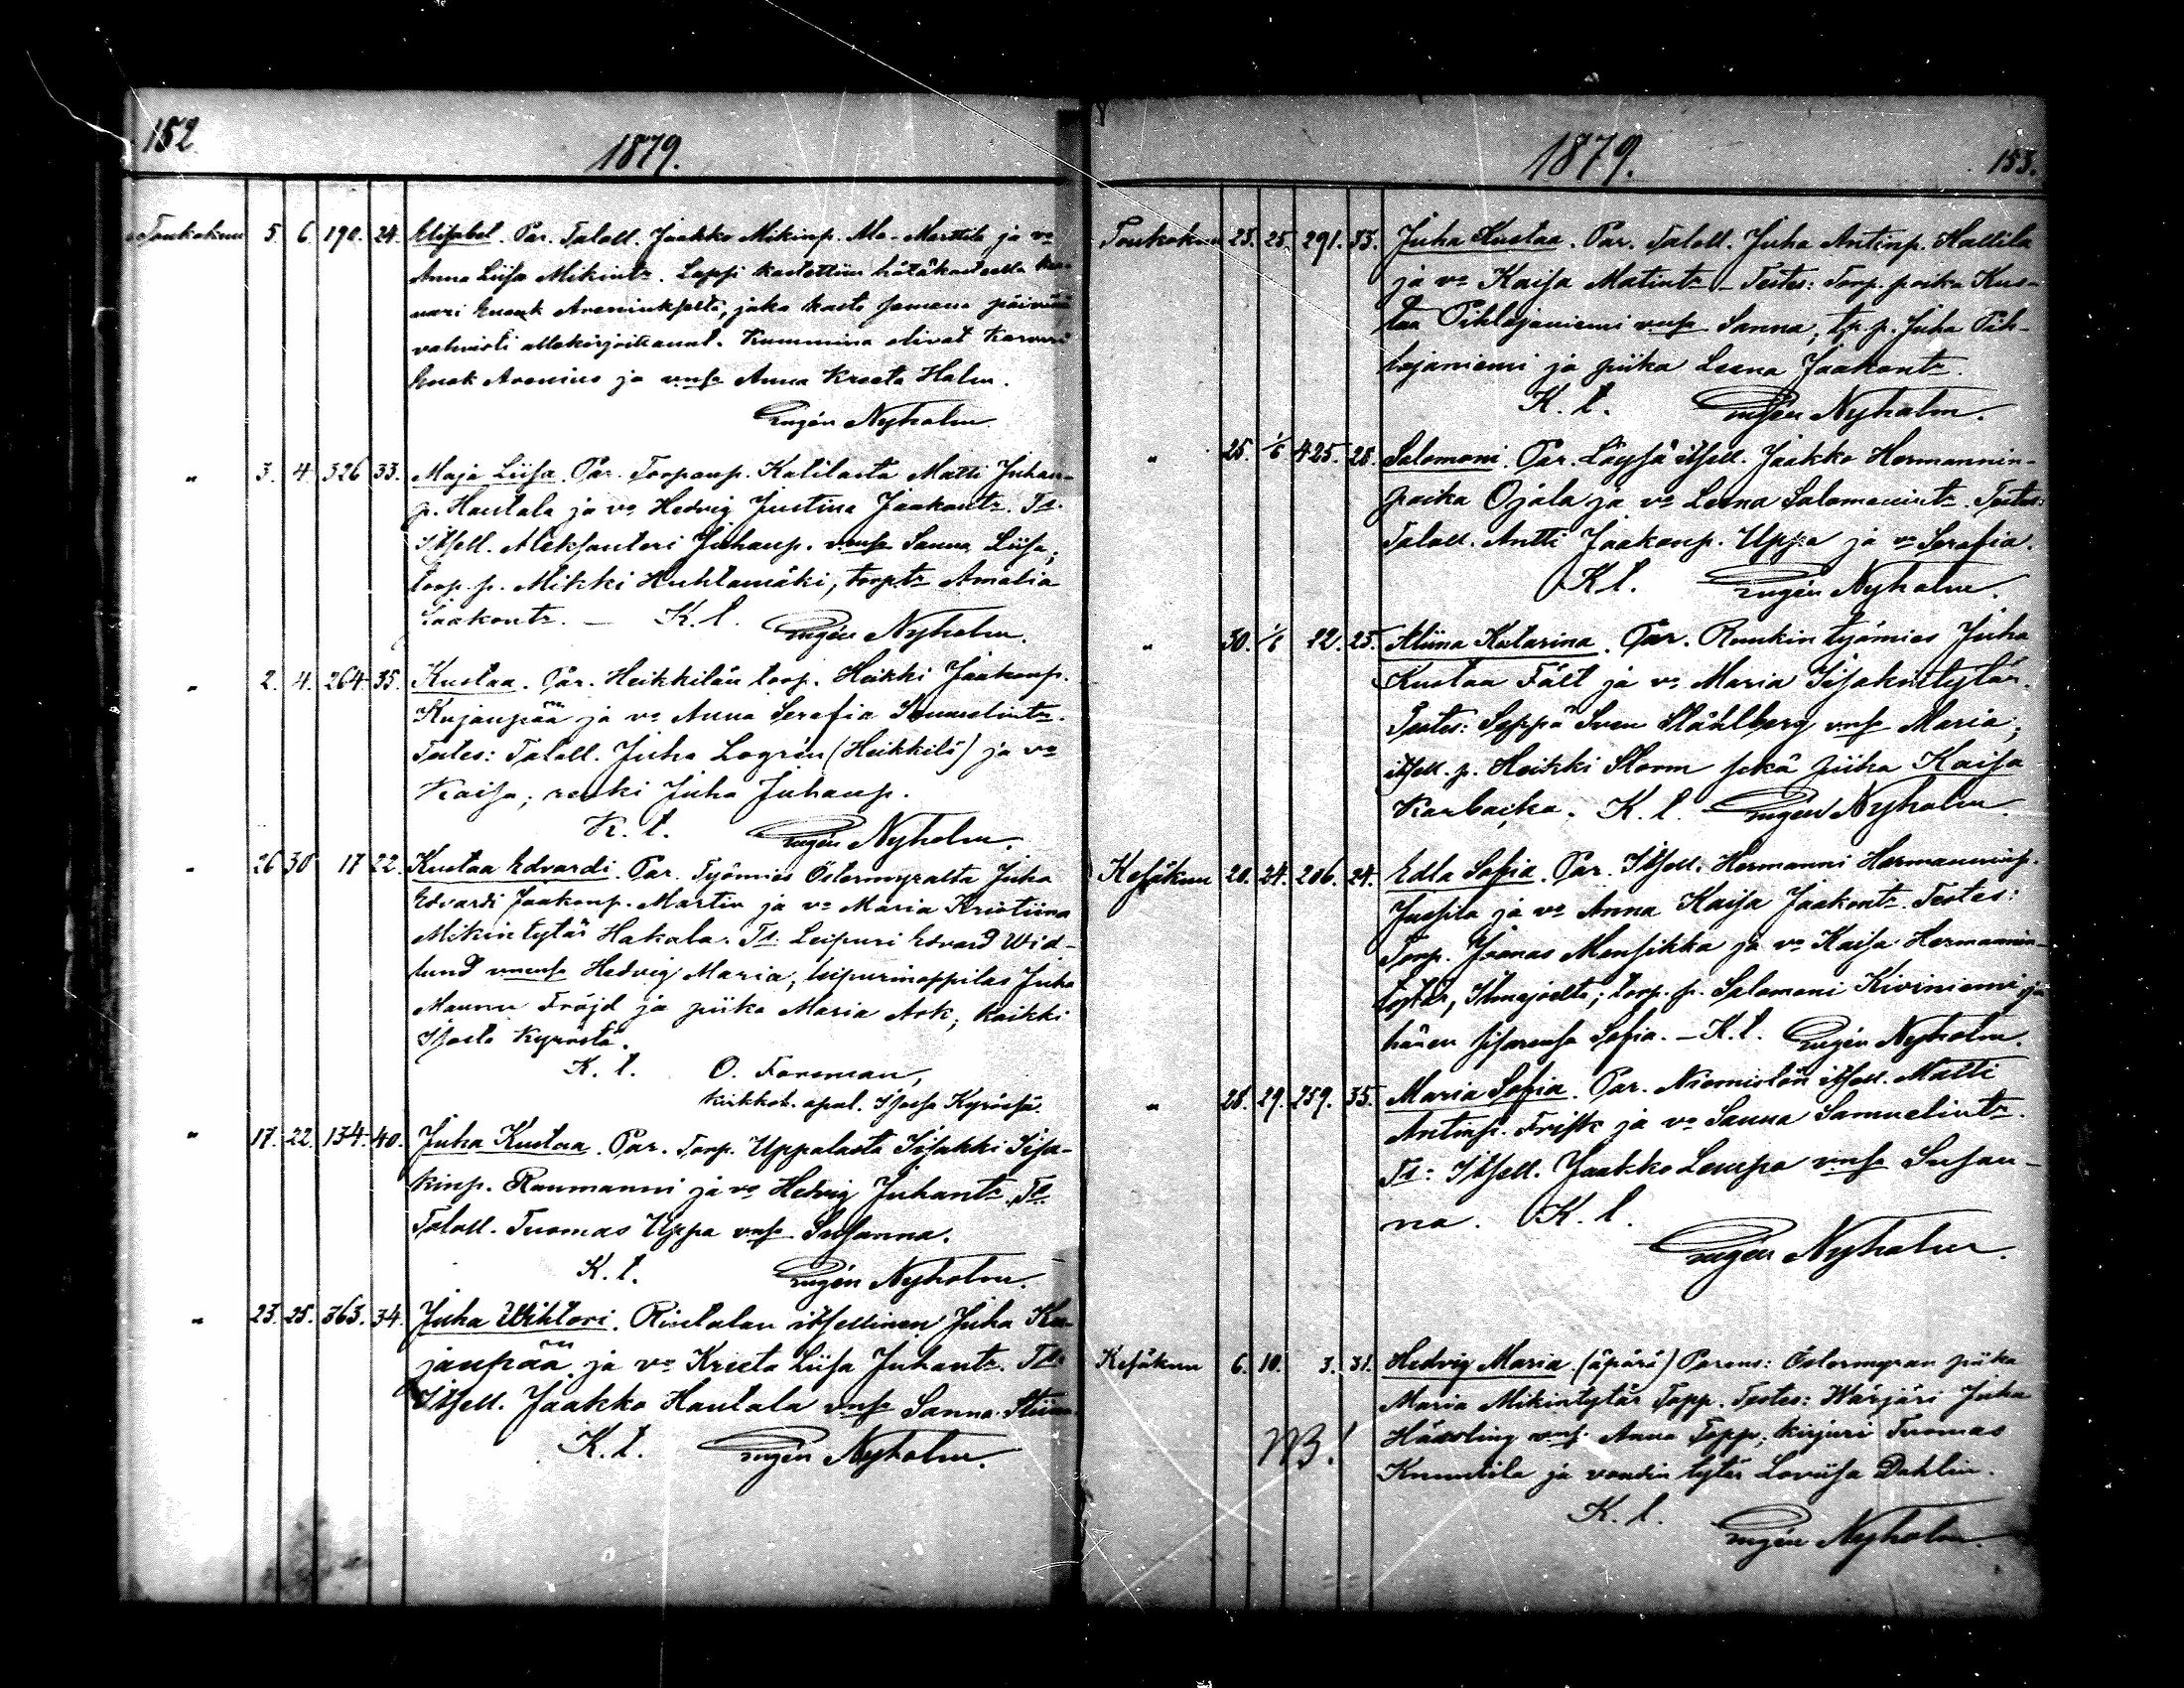 152
1879.
Toukokuu 5. 6. 190. 24. Elisabet. Par. Taloll. Jaakko Mikinp. Ala-Marttila ja vo
Anna Liisa Mikintr. Lapsi kastettiin hätäkasteella kar-
vari Enok Areniukselta, joka kaste samana päivänä
vahvisti allekirjoittanut. Kummina olivat Karvari
Enok Arenius ja vmsa Anna Kreeta Holm.
Eugén Nyholm.
" 3. 4. 326 33. Maja Liisa. Par. Torpanp. Katilasta Matti Juhan-
p. Hautala ja vo Hedvig Justina Jaakontr. Ts.
Itsell. Aleksanteri Juhanp. vmsa Sanna Liisa;
torp. p. Mikki Huhtamäki, torp.tr Amalia
Jaakontr. — K. l. Eugén Nyholm.
" 2. 4. 264. 35. Kustaa. Par. Heikkilän torp. Heikki Jaakonp.
Kujanpää ja vo Anna Serafia Samuelintr.
Testes: Taloll. Juha Logrén (Heikkilä) ja vo
Kaisa; renki Juha Juhanp.
K. l. Eugén Nyholm.
" 26 30 17 22. Kustaa Edvardi. Par. Työmies Östermyralta Juha
Edvardi Jaakonp. Martin ja vo Maria Kristiina
Mikintytär Hakala. Ts: Leipuri Edvard Wid-
lund vmsa Hedvig Maria; leipurinoppilas Juha
Maunu Fröjd ja piika Maria Ask; kaikki
Isosta Kyröstä.
K. l. O. Forsman,
kirkkoh. apul. Isossa Kyrössä.
" 17. 22. 134. 40. Juha Kustaa. Par. Torp. Uppalasta Iisakki Iisa-
kinp. Raumanni ja vo Hedvig Juhantr. Ts.
Taloll. Tuomas Uppa vmsa Susanna.
K. l. Eugén Nyholm.
" 23. 25. 363. 34. Juha Wihtori. Rintalan itsellinen Juha Ku-
janpää ja vo Kreeta Liisa Juhantr. Ts:
Itsell. Jaakko Hautala vmsa Sanna Stiina.
K. l. Eugén Nyholm.
1879.
153.
Toukokuu 23. 25. 291. 33. Juha Kustaa. Par. Taloll. Juha Antinp. Hallila
ja vo Kaisa Matintr. — Testes: Torp. poika Kus-
taa Pihlajaniemi vmsa Sanna, tp. p. Juha Pih-
lajaniemi ja piika Leena Jaakontr.
K. l. Eugén Nyholm.
" 25. 1/6 425. 28. Salomoni. Par. Löysä itsell. Jaakko Hermannin-
poika Ojala ja vo Leena Salomonintr. Testes:
Taloll. Antti Jaakonp. Uppa ja vo Serafia.
K. l. Eugén Nyholm.
" 30. 1/6 12. 25. Aliina Katarina. Par. Ruukin työmies Juha
Kustaa Fält ja vo Maria Iisakintytär.
Testes: Seppä Sven Ståhlberg vmsa Maria;
itsell. p. Heikki Storm sekä piika Kaisa
Karbacka. K. l. Eugén Nyholm.
Kesäkuu 20. 24. 206. 24. Edla Sofia. Par. Itsell. Hermanni Hermanninp.
Jussila ja vo Anna Kaisa Jaakontr. Testes:
Torp. Joonas Mensikka ja vo Kaisa Hermannin-
tytär, Ilmajoelta; torp. p. Salomoni Kiviniemi ja
hänen sisarensa Sofia. — K. l. Eugén Nyholm.
" 28. 29. 259. 35. Maria Sofia. Par. Niemistön itsell. Matti
Antinp. Frisk ja vo Sanna Samuelintr.
Ts: Itsell. Jaakko Lempa vmsa Susan-
na. K. l.
Eugén Nyholm.
Kesäkuu 6. 10. 3. 31. Hedvig Maria (äpärä) Parens: Östermyran piika
Maria Mikintytär Topp. Testes: Wärjäri Juha
NB! Hässling vmsa Anna Topp; kirjuri Tuomas
Knuutila ja voudin tytär Loviisa Dahlin.
K. l.
Eugén Nyholm.